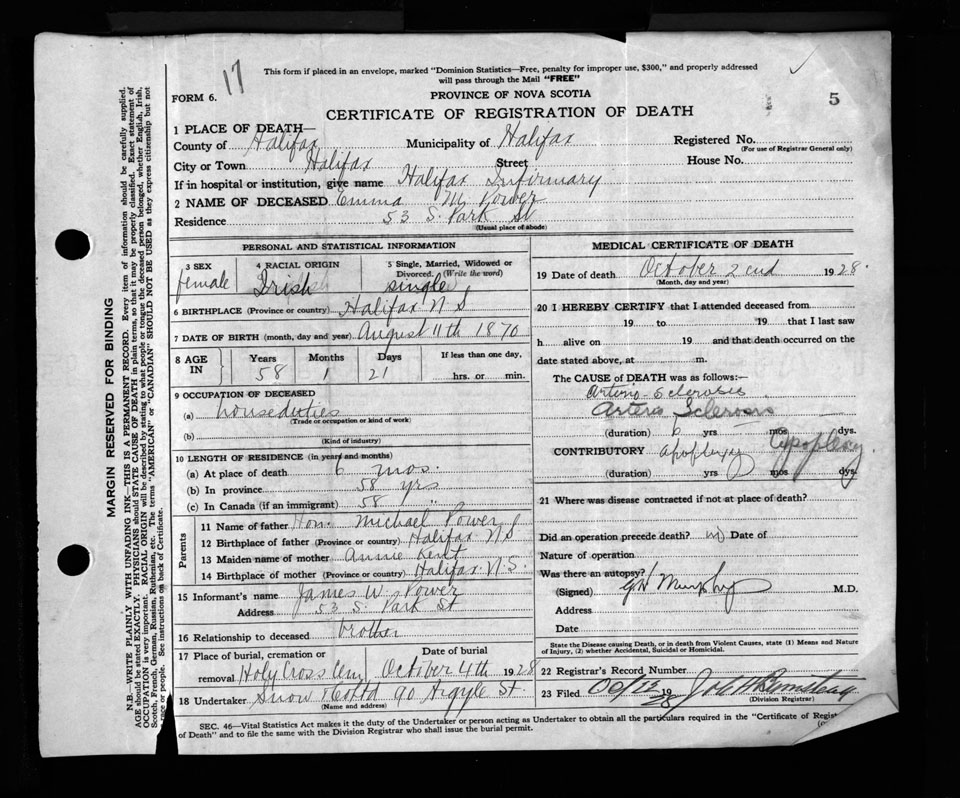 17
This form if placed in an envelope, marked "Dominion Statistics—Free, penalty for improper use, $300," and properly addressed
will pass through the Mail "FREE"
FORM 6.
PROVINCE OF NOVA SCOTIA
5
CERTIFICATE OF REGISTRATION OF DEATH
1 PLACE OF DEATH—
County of Halifax Municipality of Halifax Registered No.
(For use of Registrar General only)
City or Town Halifax Street House No.
If in hospital or institution, give name Halifax Infirmary
2 NAME OF DECEASED Emma M. Power
Residence 53 S. Park St
(Usual place of abode)
PERSONAL AND STATISTICAL INFORMATION
3 SEX 4 RACIAL ORIGIN 5 Single, Married, Widowed or
Divorced. (Write the word)
female Irish single
6 BIRTHPLACE (Province or country) Halifax N S
7 DATE OF BIRTH (month, day and year) August 11th 1870
8 AGE IN Years Months Days If less than one day,
58 1 21 hrs. or min.
9 OCCUPATION OF DECEASED
(a) houseduties
(Trade or occupation or kind of work)
(b)
(Kind of industry)
10 LENGTH OF RESIDENCE (in years and months)
(a) At place of death 6 mos.
(b) In province 58 yrs
(c) In Canada (if an immigrant) 58 "
Parents
11 Name of father Hon. Michael Power
12 Birthplace of father (Province or country) Halifax N S
13 Maiden name of mother Annie Kent
14 Birthplace of mother (Province or country) Halifax N.S.
15 Informant's name James W. Power
Address 53 S. Park St
16 Relationship to deceased brother
17 Place of burial, cremation or removal Date of burial
Holy Cross Cem October 4th 1928
18 Undertaker Snow & Co Ltd 90 Argyle St.
(Name and address)
MEDICAL CERTIFICATE OF DEATH
19 Date of death October 2cnd 1928.
(Month, day and year)
20 I HEREBY CERTIFY that I attended deceased from
19 to 19 that I last saw
h alive on 19 and that death occurred on the
date stated above, at m.
The CAUSE of DEATH was as follows:—
Arterio Sclerosis
Arterio Sclerosis
(duration) 6 yrs mos. dys.
CONTRIBUTORY apoplexy apoplexy
(duration) yrs mos dys.
21 Where was disease contracted if not at place of death?
Did an operation precede death? no Date of
Nature of operation
Was there an autopsy?
(Signed) Murphy M.D.
Address
Date
State the Disease causing Death, or in death from Violent Causes, state (1) Means and Nature
of Injury, (2) whether Accidental, Suicidal or Homicidal.
22 Registrar's Record Number
23 Filed 19
(Division Registrar)
SEC. 46—Vital Statistics Act makes it the duty of the Undertaker or person acting as Undertaker to obtain all the particulars required in the "Certificate of Regist
of Death" and to file the same with the Division Registrar who shall issue the burial permit.
MARGIN RESERVED FOR BINDING
N.B.—WRITE PLAINLY WITH UNFADING INK—THIS IS A PERMANENT RECORD. Every item of information should be carefully supplied.
AGE should be stated EXACTLY. PHYSICIANS should STATE CAUSE OF DEATH in plain terms, so that it may be properly classified. Exact statement of
OCCUPATION is very important. RACIAL ORIGIN will be described by stating to what people or tongue the deceased person belonged, whether English, Irish,
Scotch, French, German, Russian, Ruthenian, etc. The terms "AMERICAN" or "CANADIAN" SHOULD NOT BE USED as they express citizenship but not
race or people. See instructions on back of Certificate.